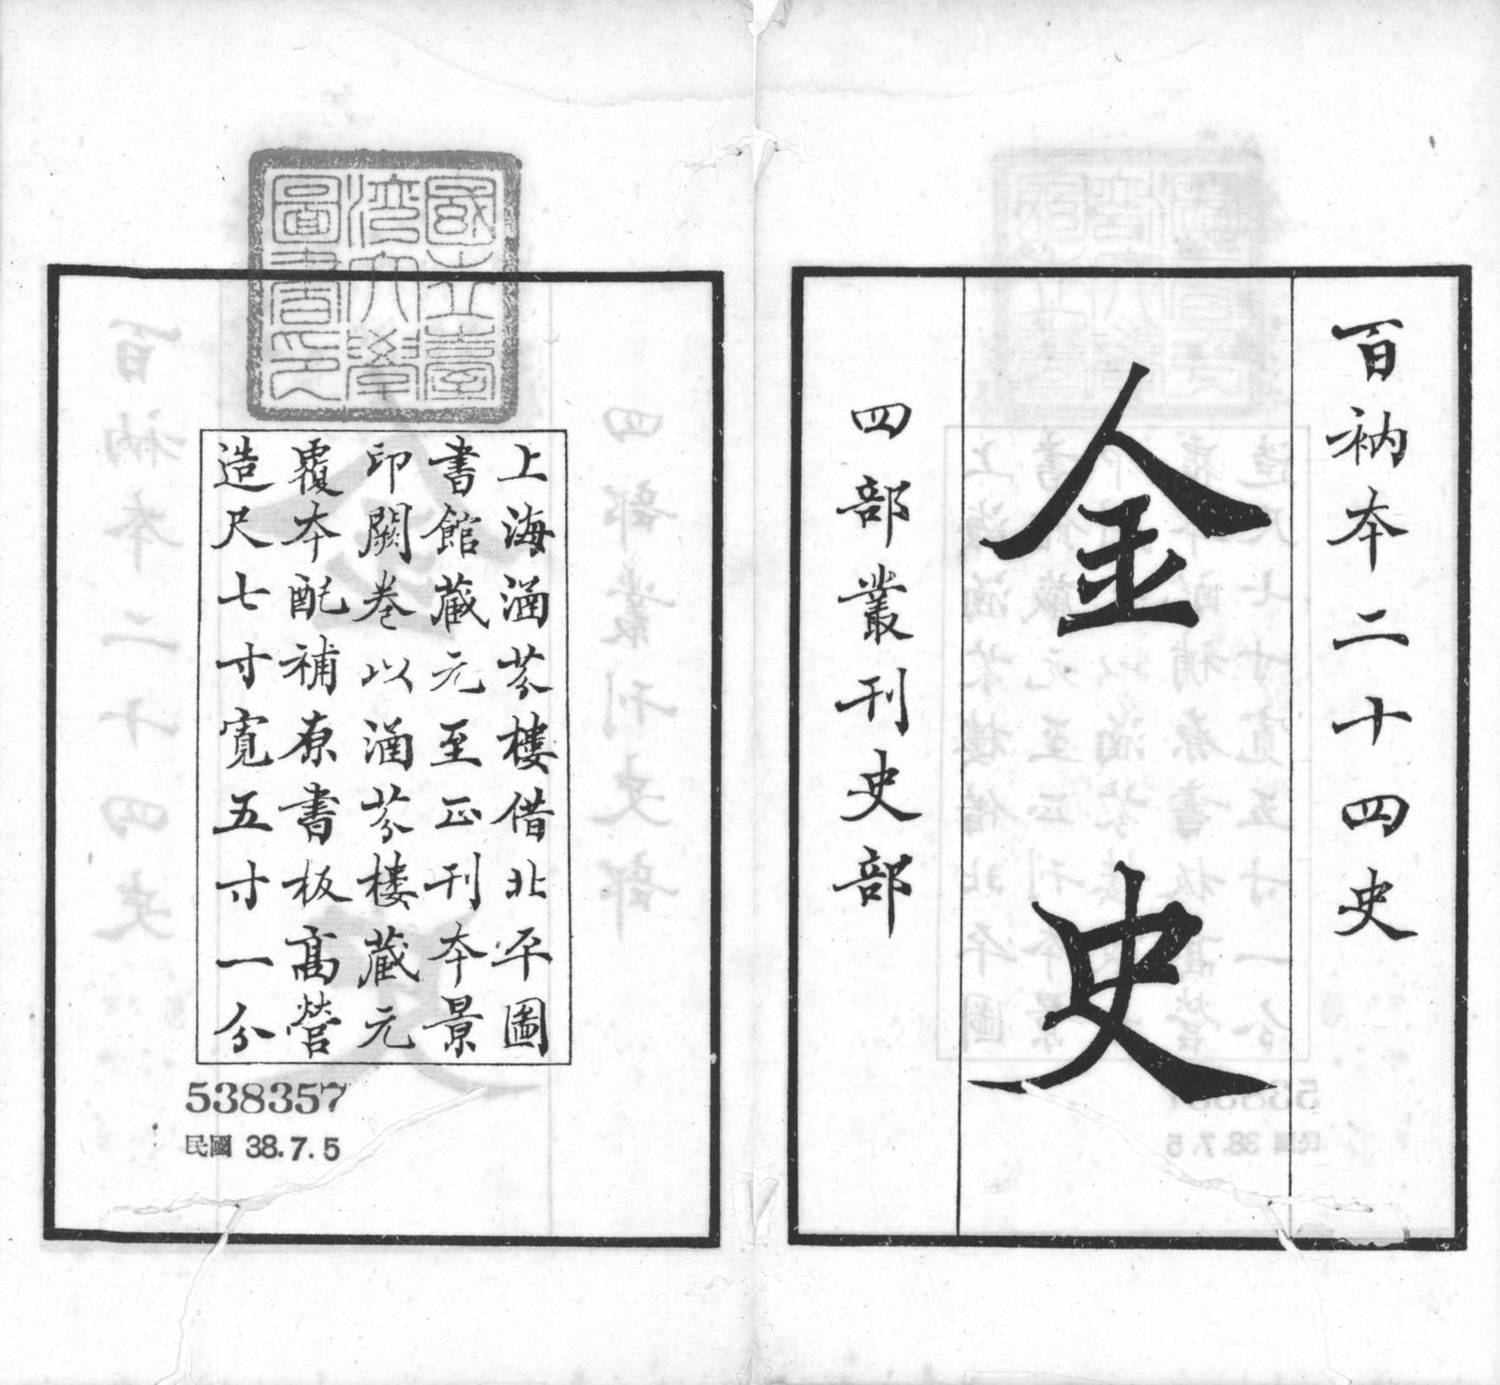 百衲本二十四史
金史
四部叢刊史部
國立臺
灣大學
圖書印
上海涵芬樓借北平圖
書館藏元至正刊本景
印闕卷以涵芬樓藏元
覆本配補原書板高營
造尺七寸寬五寸一分
538357
民國 38.7.5